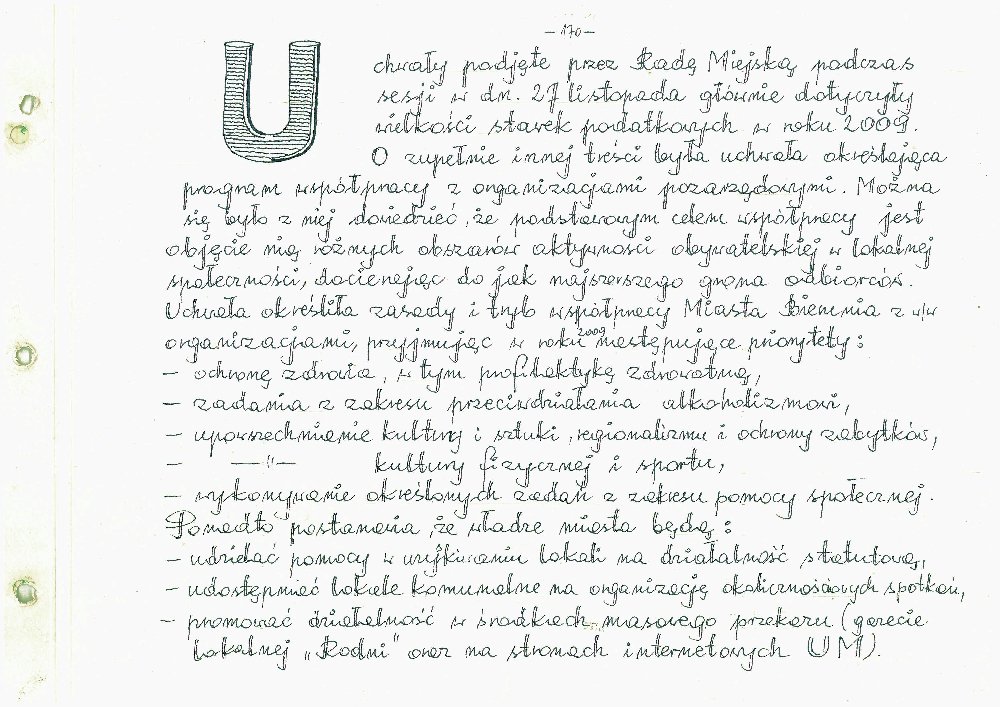 - 170 -
Uchwały podjęte przez Radę Miejską podczas
sesji w dn. 27 listopada głównie dotyczyły
wielkości stawek podatkowych w roku 2009.
O zupełnie innej treści była uchwała określająca
program współpracy z organizacjami pozarządowymi. Można
się było z niej dowiedzieć, że podstawowym celem współpracy jest
objęcie nią różnych obszarów aktywności obywatelskiej w lokalnej
społeczności, docierając do jak najszerszego grona odbiorców.
Uchwała określiła zasady i tryb współpracy Miasta Bierunia z w/w
organizacjami, przyjmując w roku 2009 następujące priorytety:
- ochronę zdrowia, w tym profilaktykę zdrowotną,
- zadania z zakresu przeciwdziałania alkoholizmowi,
- upowszechnienie kultury i sztuki, regionalizmu i ochrony zabytków,
- —"— kultury fizycznej i sportu,
- wykonywanie określonych zadań z zakresu pomocy społecznej.
Ponadto postanawia, że władze miasta będą:
- udzielać pomocy w uzyskiwaniu lokali na działalność statutową,
- udostępniać lokale komunalne na organizację okolicznościowych spotkań,
- promować działalność w środkach masowego przekazu (gazecie
lokalnej „Rodni" oraz na stronach internetowych UM).